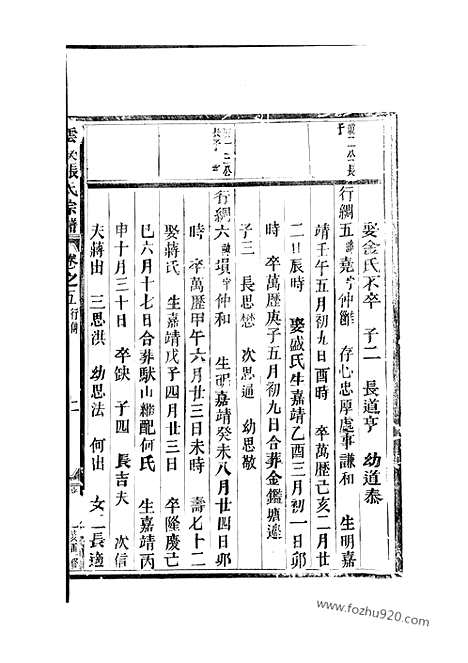 娶金氏不卒 子二 長道亨 幼道泰
行綢五諱堯字仲雝 存心忠厚處事謙和 生明嘉
靖壬午五月初九日酉時 卒萬歷己亥二月廿
二日辰時 娶盛氏生嘉靖乙酉三月初一日卯
時 卒萬歷庚子五月初九日合葬金鑑塘連
子三 長思懋 次思通 幼思敬
行綢六諱塤字仲和 生明嘉靖癸未八月廿四日卯
時 卒萬歷甲午六月廿三日未時 壽七十二
娶蔣氏 生嘉靖戊子四月廿三日 卒隆慶己
巳六月十七日合葬馱山 繼配何氏 生嘉靖丙
申十月三十日 卒缺 子四 長吉夫 次信
夫蔣出 三思洪 幼思法 何出 女二長適
張氏宗譜 卷之五 行傳
www.fozhu920.com